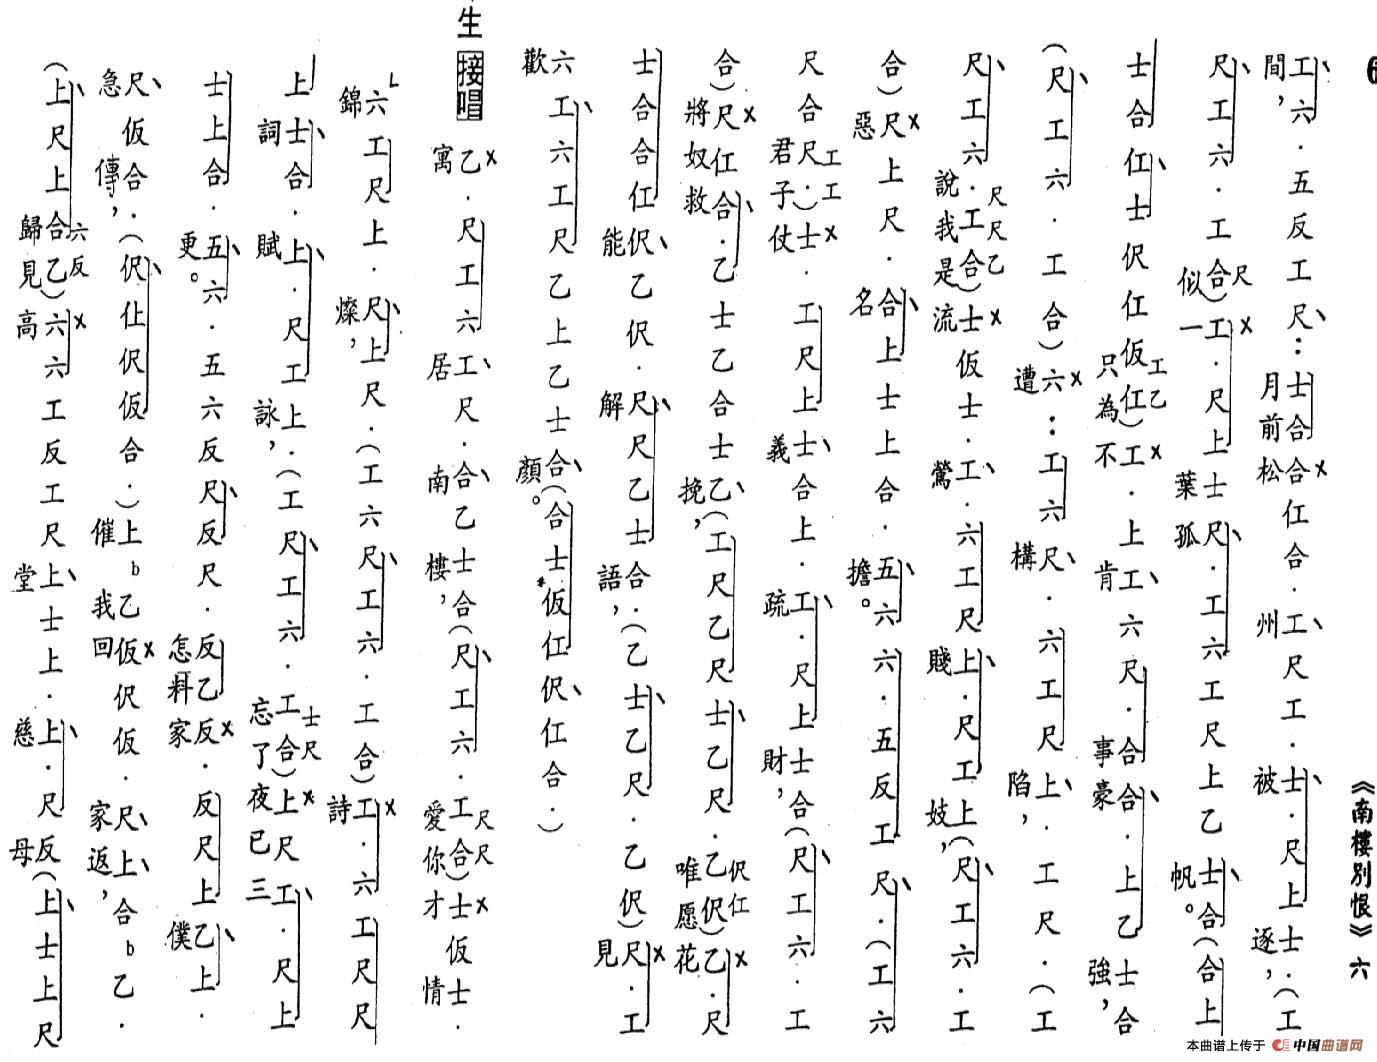 《南樓別恨》六
工六．五反工尺：士合合仜合．工尺工．士．尺上士．（工
間，月前松州被逐，
尺工六．工合）工．尺上士尺．工六工尺上乙士合（合上
尺
似一葉孤帆。
士合仜士伬仜仮仜）工．上工六尺．合合．上乙士合
工乙
只為不肯事豪強，
（尺工六．工合）六：工六尺．六工尺上．工尺．（工
遭構陷，
尺工六．工合）士仮士．工．六工尺上．尺工上（尺工六．工
尺尺乙
說我是流鶯賤妓，
合）尺上尺．合上士上合．五六六．五反工尺．（工六
惡名擔。
尺合尺．）士．工尺上士合上．工．尺上士合（尺工六．工
工工
君子仗義疏財，
合）尺仜合．乙士乙合士乙（工尺乙尺士乙尺．乙伬）乙．尺
伬仜
將奴救挽，唯愿花
士合合仜伬乙伬．尺尺乙士合．（乙士乙尺．乙伬）尺．工
能解語，見
六工六工尺乙上乙士合（合士仮仜伬仜合．）
歡顏。
生 接唱 乙．尺工六工尺．合乙士合（尺工六．工合）士仮士．
尺尺
寓居南樓，愛你才情
六工尺上．尺上尺．（工六尺工六．工合）工．六工尺尺
錦燦，詩
上士合．上．尺工上．（工尺工六．工合）上尺工．尺上
士尺
詞賦詠，忘了夜已三
士上合．五六．五六反尺反尺．反乙反．反尺上乙上．
更。怎料家僕
尺仮合．（伬仩伬仮合．）上b乙仮伬仮．尺上合b乙．
急傳，催我回家返，
（上尺上合乙）六六工反工尺上士上．上．尺反（上士上尺
六反
歸見高堂慈母
本曲谱上传于 中国曲谱网